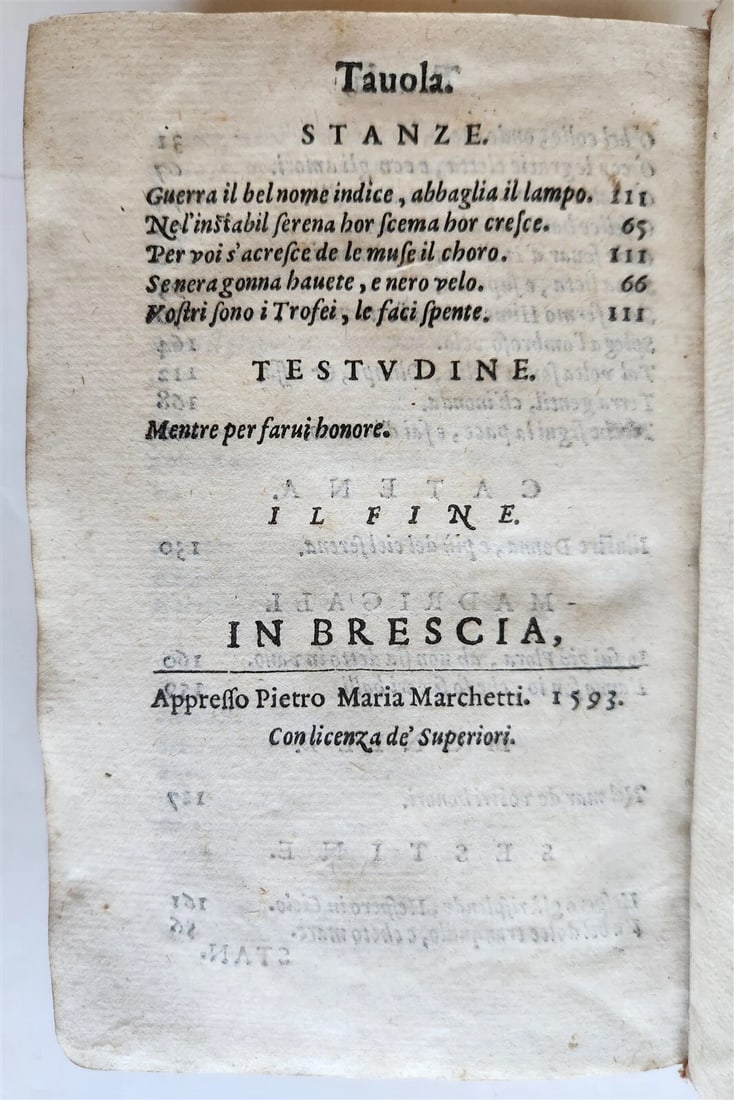 Tauola.
STANZE.
Guerra il bel nome indice, abbaglia il lampo. 111
Nel'instabil serena hor scema hor cresce. 65
Per voi s'acresce de le muse il choro. 111
Se nera gonna hauete, e nero velo. 66
Vostri sono i Trofei, le faci spente. 111
TESTVDINE.
Mentre per farui honore.
IL FINE.
IN BRESCIA,
Appresso Pietro Maria Marchetti. 1593.
Con licenza de' Superiori.